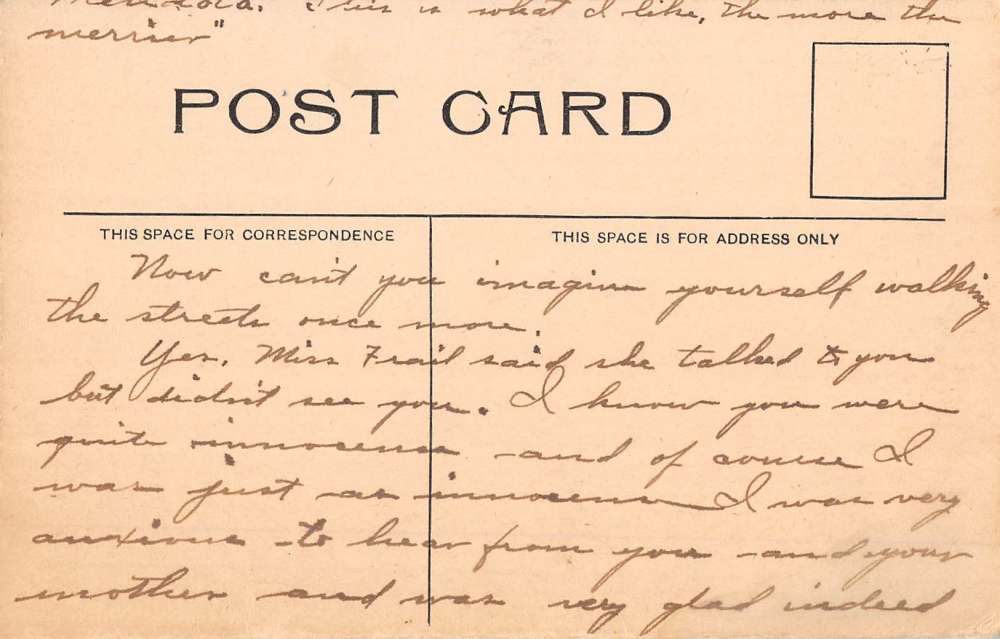 Mendota. This is what I like, the more the
merrier"
POST CARD
THIS SPACE FOR CORRESPONDENCE
THIS SPACE IS FOR ADDRESS ONLY
Now can't you imagine yourself walking
the streets once more.
Yes, Miss Frail said she talked to you
but didn't see you. I know you were
quite innocence and of course I
was just as innocence I was very
anxious to hear from you and your
mother and was very glad indeed